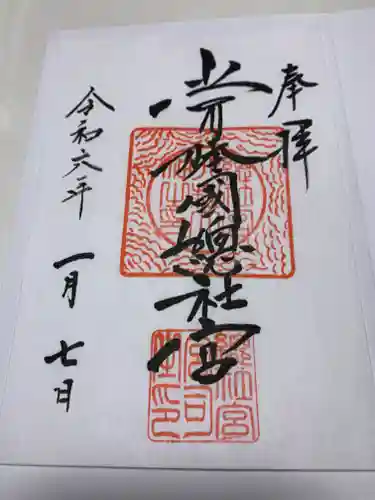 奉拝
常陸國總社宮
令和六年 一月 七日